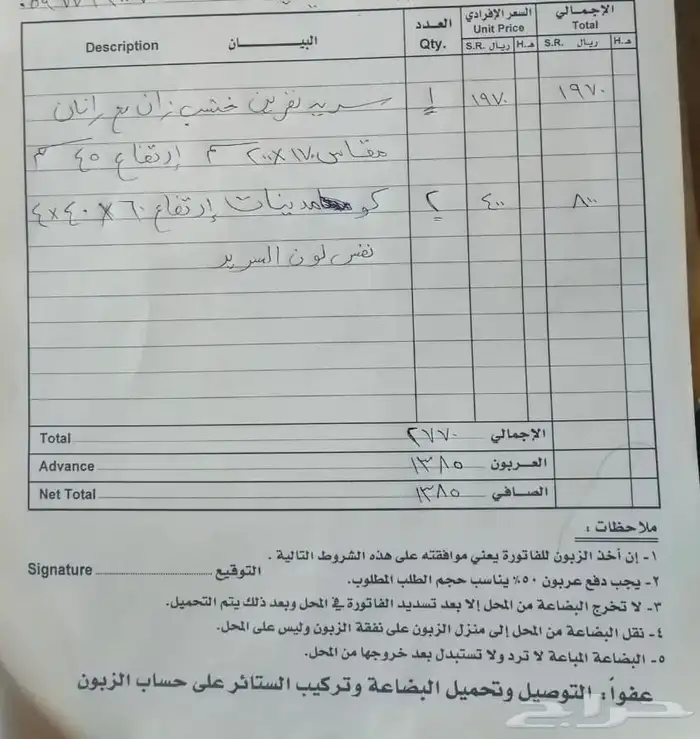 البيـــــان Description
العدد Qty.
السعر الإفرادي Unit Price
ريال S.R. هـ. H.
الإجمالي Total
ريال S.R. هـ. H.
سرير نفرين خشب زان مع رانان ١ ١٩٧٠ ١٩٧٠
مقاس ١٧٠×٢٠٠ م إرتفاع ٤٥ م
كومدينات إرتفاع ٦٠×٤٠×٤ ٢ ٤٠٠ ٨٠٠
نفس لون السرير
Total ٢٧٧٠ الإجمالي
Advance ١٣٨٥ العربون
Net Total ١٣٨٥ الصافي
ملاحظات :
١- إن أخذ الزبون للفاتورة يعني موافقته على هذه الشروط التالية .
Signature التوقيع
٢- يجب دفع عربون ٥٠٪ يناسب حجم الطلب المطلوب.
٣- لا تخرج البضاعة من المحل إلا بعد تسديد الفاتورة في المحل وبعد ذلك يتم التحميل.
٤- نقل البضاعة من المحل إلى منزل الزبون على نفقة الزبون وليس على المحل.
٥- البضاعة المباعة لا ترد ولا تستبدل بعد خروجها من المحل.
عفواً: التوصيل وتحميل البضاعة وتركيب الستائر على حساب الزبون
حراج